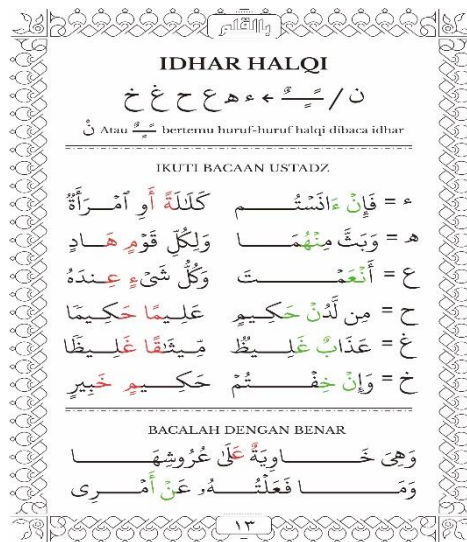 بالقلم
IDHAR HALQI
ن / ـًـٍـٌ ← ء ه ع ح غ خ
نْ Atau ـًـٍـٌ bertemu huruf-huruf halqi dibaca idhar
IKUTI BACAAN USTADZ
ء = فَإِنْ ءَانَسْتُـــم كَلَٰلَةً أَوِ ٱمْـرَأَةٌ
هـ = وَبَثَّ مِنْهُمَــا وَلِكُلِّ قَوْمٍ هَــادٍ
ع = أَنْعَمْــــتَ وَكُلُّ شَىْءٍ عِـندَهُ
ح = مِن لَّدُنْ حَـكِيمٍ عَلِـيمًا حَكِـيمًا
غ = عَذَابٌ غَلِــيظٌ مِّـيثَٰقًا غَلِـيظًا
خ = وَإِنْ خِفْــــتُمْ حَكِـــيمٍ خَبِيرٍ
BACALAH DENGAN BENAR
وَهِىَ خَـــاوِيَةٌ عَلَىٰ عُرُوشِهَـــا
وَمَـــا فَعَلْتُـــهُۥ عَنْ أَمْـــرِى
١٣